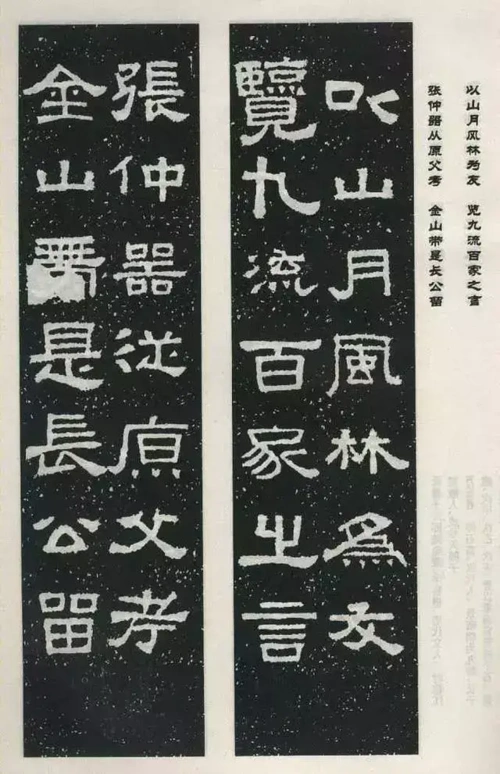 以山月风林为友　览九流百家之言
张仲器从原父考　金山带是长公留
以山月風林為友
覽九流百家之言
張仲器從原父考
金山帶是長公留